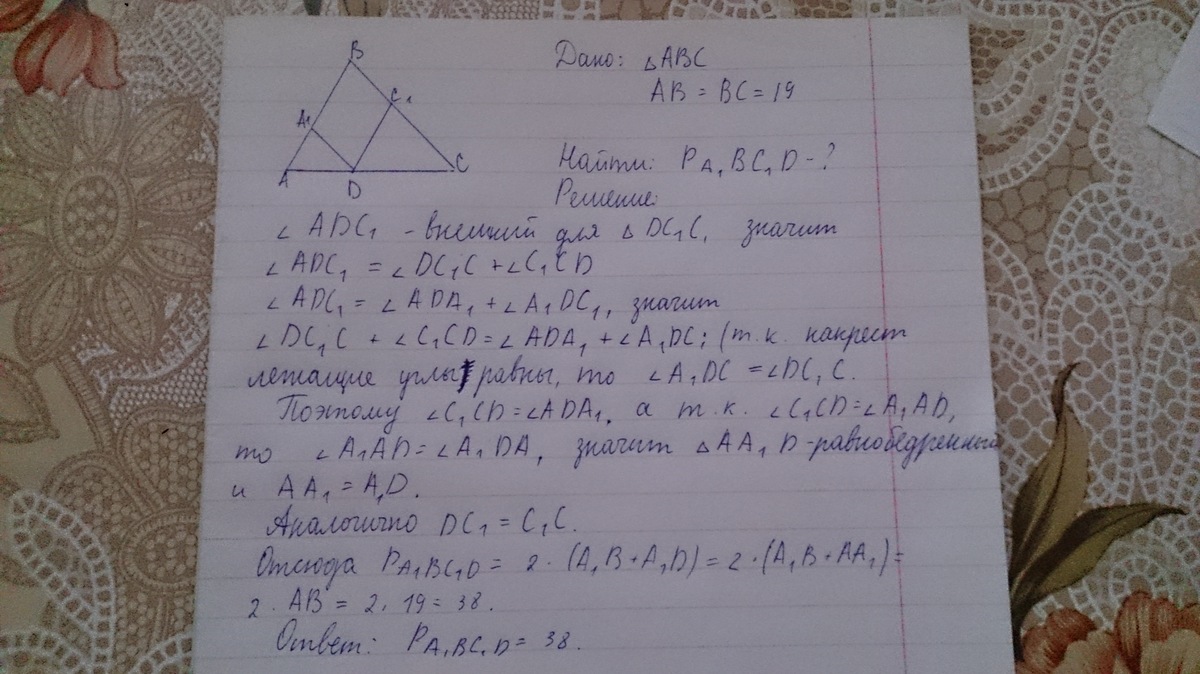 B
C₁
A₁
A
D
C
Дано: △ABC
AB = BC = 19
Найти: P A₁BC₁D - ?
Решение:
∠ADC₁ - внешний для △DC₁C, значит
∠ADC₁ = ∠DC₁C + ∠C₁CD
∠ADC₁ = ∠ADA₁ + ∠A₁DC₁, значит
∠DC₁C + ∠C₁CD = ∠ADA₁ + ∠A₁DC; (т.к. накрест
лежащие углы равны, то ∠A₁DC = ∠DC₁C.
Поэтому ∠C₁CD = ∠ADA₁, а т.к. ∠C₁CD = ∠A₁AD,
то ∠A₁AD = ∠A₁DA, значит △AA₁D - равнобедренный
и AA₁ = A₁D.
Аналогично DC₁ = C₁C.
Отсюда P A₁BC₁D = 2 · (A₁B + A₁D) = 2 · (A₁B + AA₁) =
2 · AB = 2 · 19 = 38.
Ответ: P A₁BC₁D = 38.